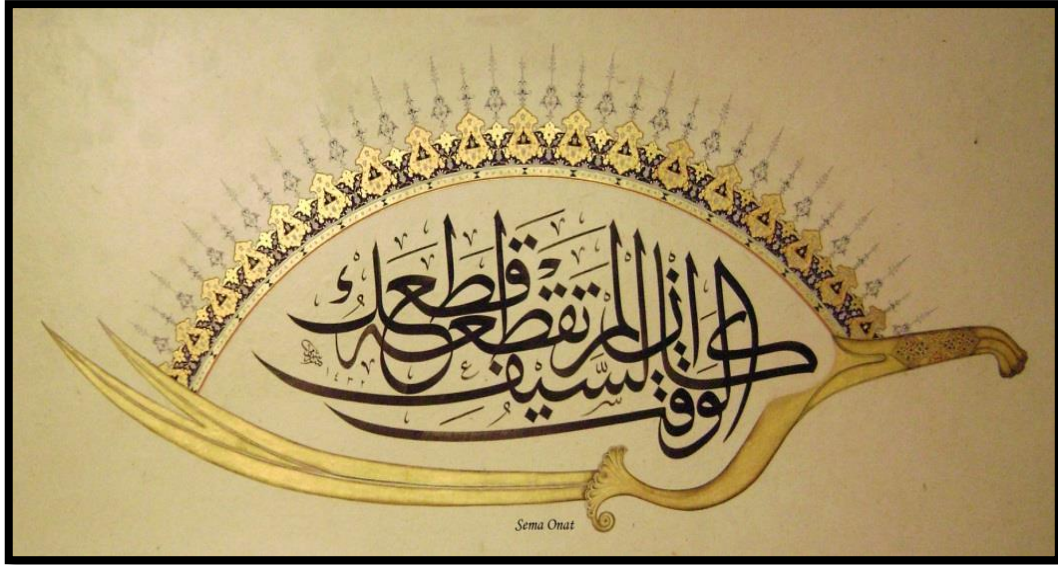 الوقت كالسيف ان لم تقطعه قطعك
١٤٣٢
Sema Onat